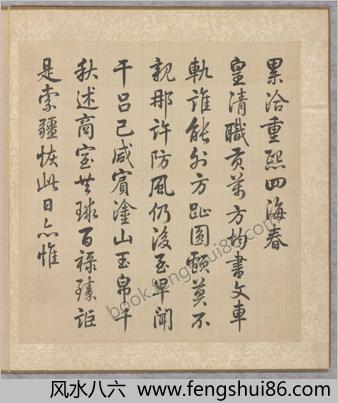 累洽重熙四海春
皇清職貢萬方均書文車
軌誰能外方趾圓顱莫不
親那許防風仍後至早聞
干呂已咸賓塗山玉帛千
秋述商室共球百祿臻詎
是索疆恢此日亦惟
book.fengshui86.com
风水八六 www.fengshui86.com